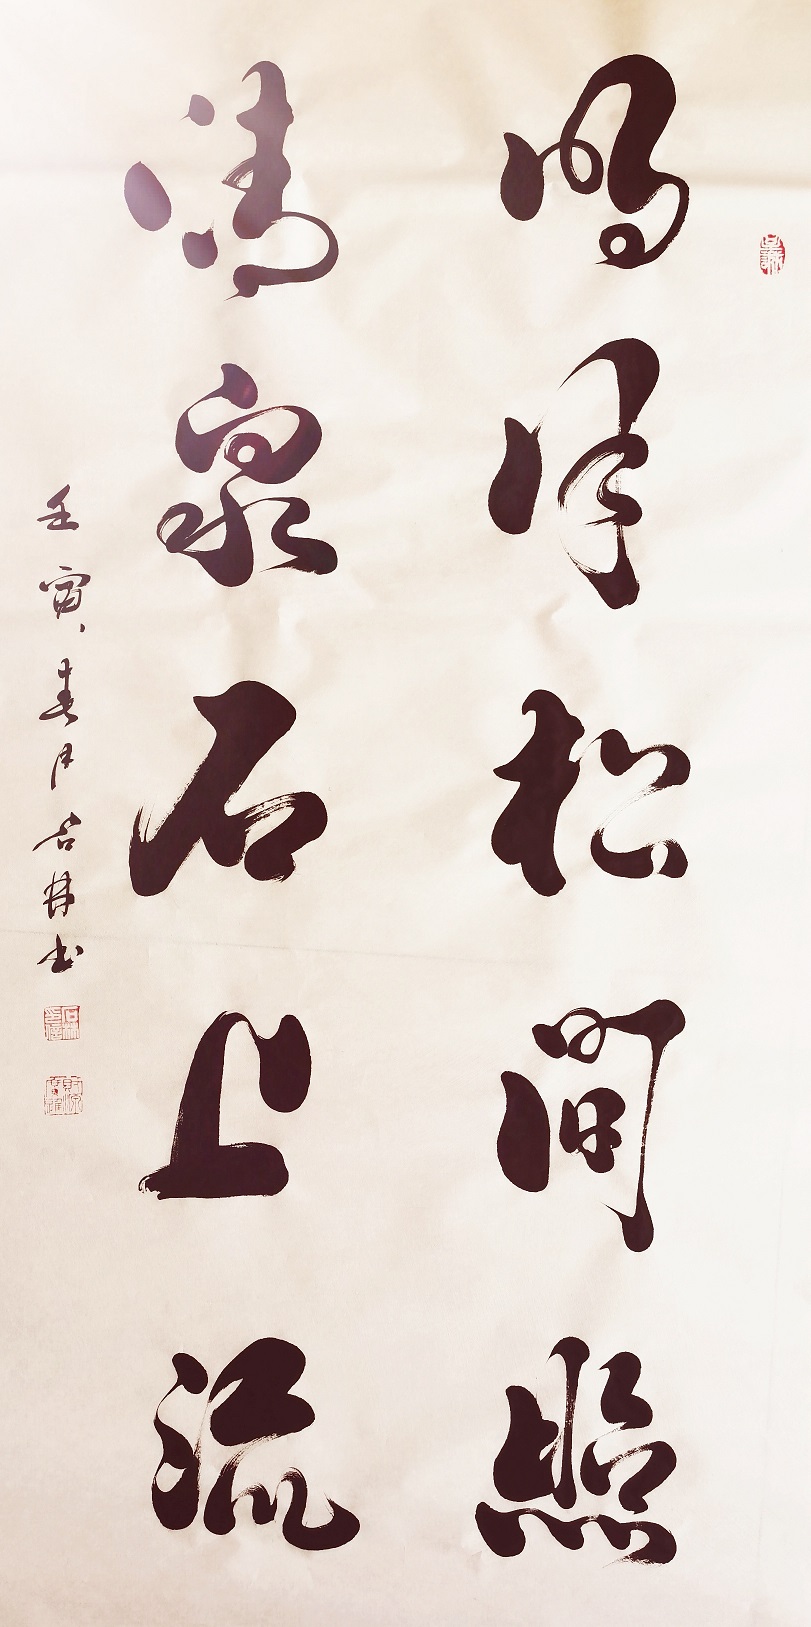 明月松間照
清泉石上流
壬寅春月石林书